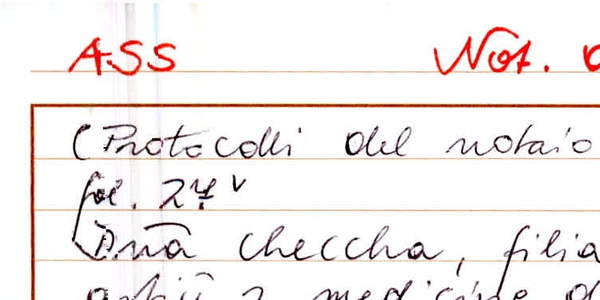 ASS Not.
(Protocolli del notaio
fol. 27v
Dnā Checcha, filia